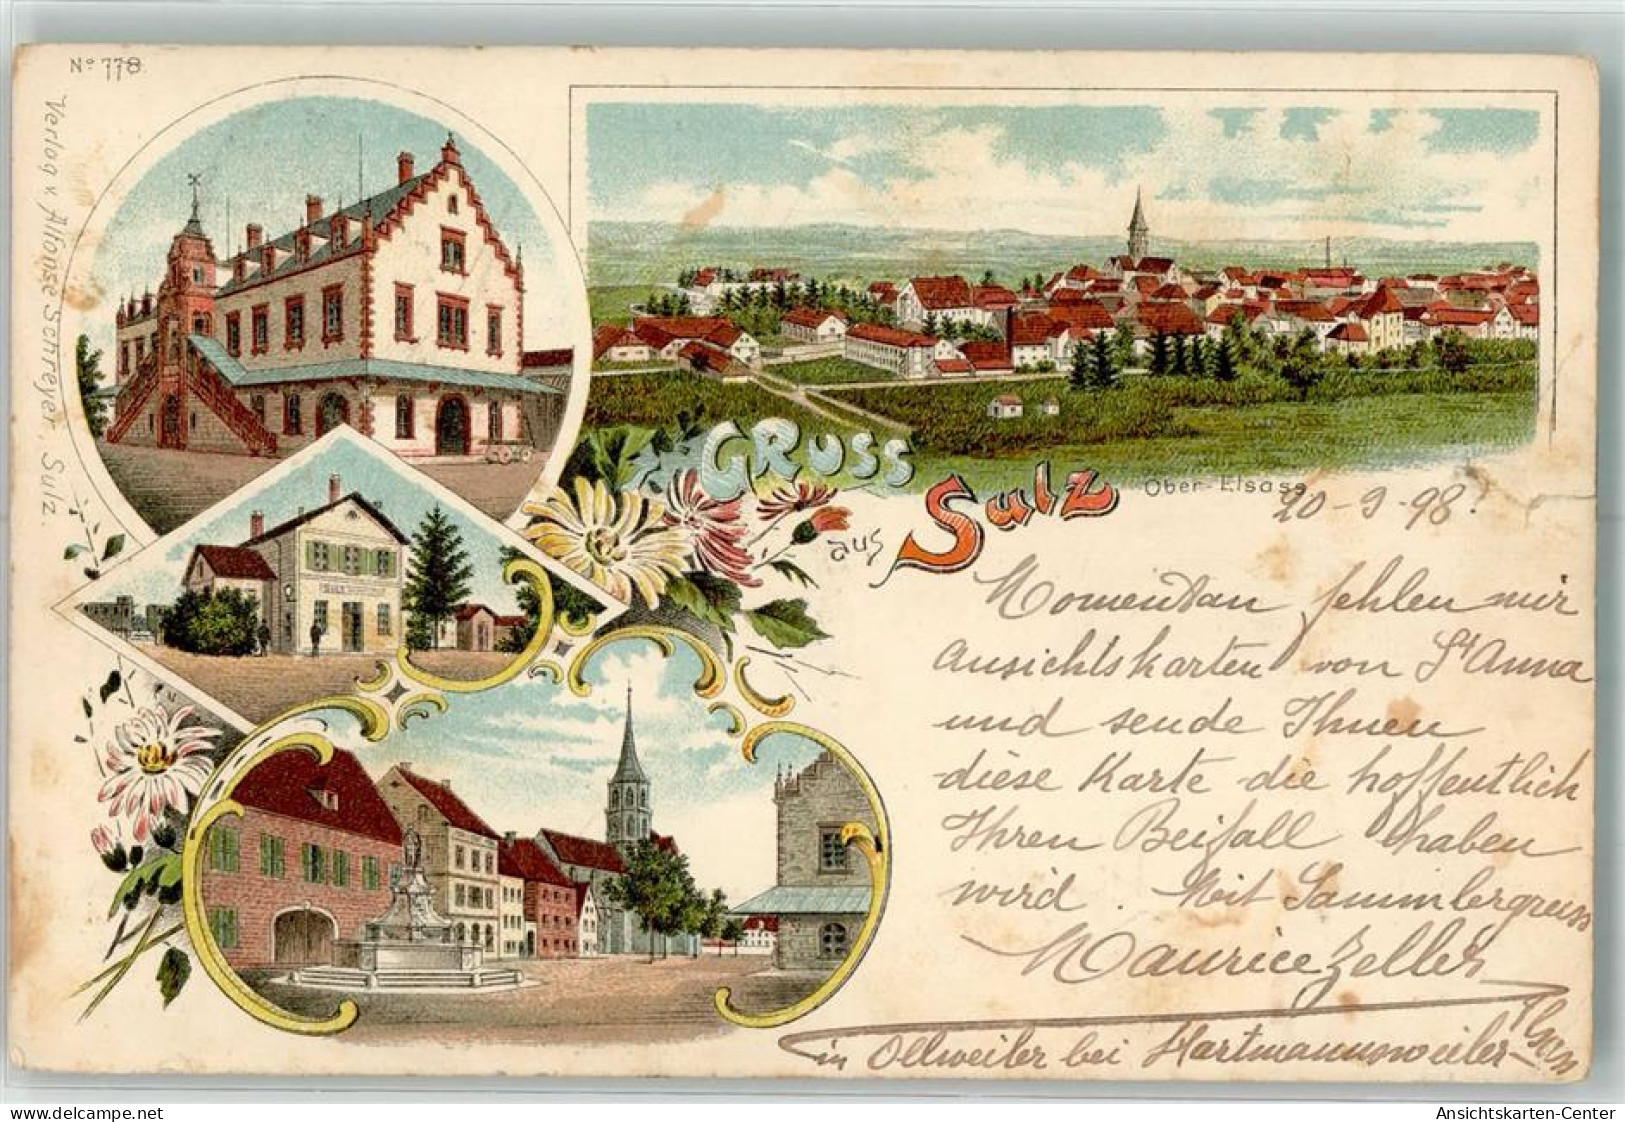 No 778.
Verlag v. Alfonse Schreyer, Sulz.
GRUSS
aus Sulz
Ober-Elsass
20-9-98.
Momentan fehlen mir
Ansichtskarten von St Anna
und sende Ihnen
diese Karte die hoffentlich
Ihren Beifall haben
wird. Mit Sammlergruss
Maurice Zeller
in Ollweiler bei Hartmannsweiler
Ansichtskarten-Center